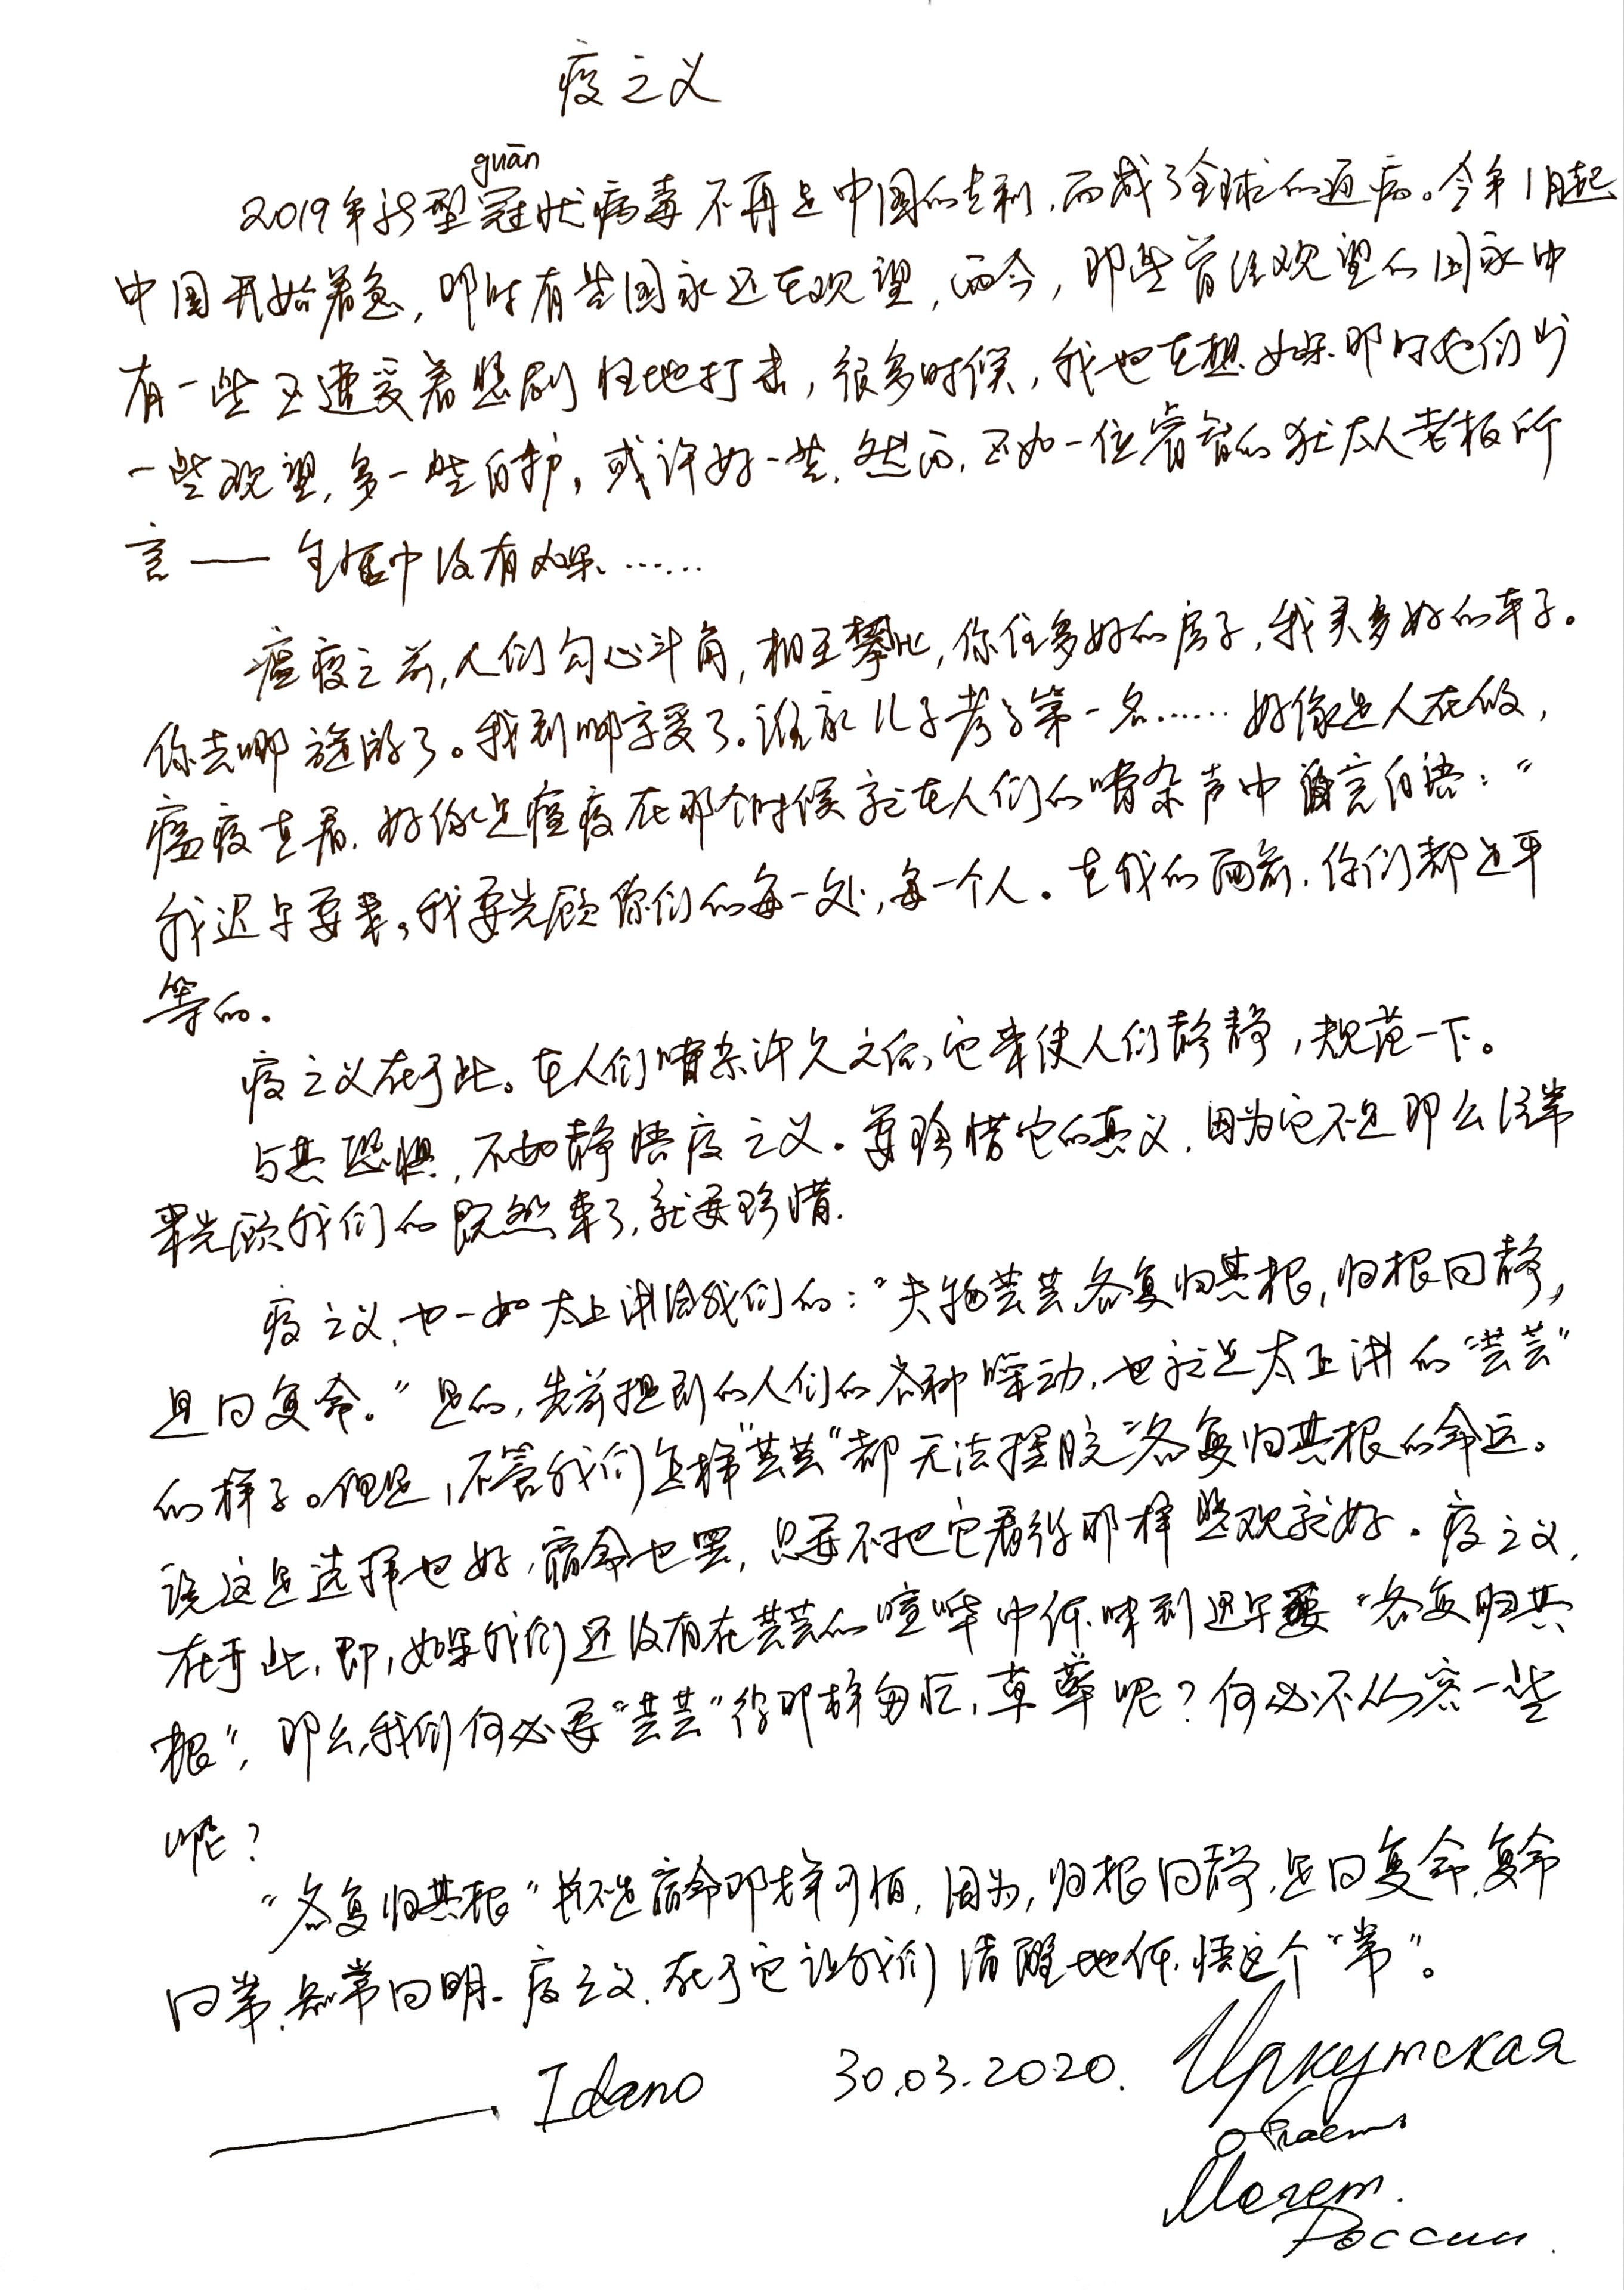 疫之义
guān
2019年新型冠状病毒不再是中国的专利,而成了全球的通病。今年1月起
中国开始着急,那时有些国家还在观望,而今,那些曾经观望的国家中
有一些正遭受着悲剧性地打击,很多时候,我也在想如果那时他们少
一些观望,多一些自护,或许好一些.然而,正如一位睿智的犹太人老板所
言——生活中没有如果……
瘟疫之前,人们勾心斗角,相互攀比,你住多好的房子,我买多好的车子。
你去哪旅游了。我到哪享受了。谁家儿子考了第一名……好像是人在做,
瘟疫在看.好像是瘟疫在那个时候就在人们的嘈杂声中自言自语:“
我迟早要来。我要光顾你们的每一处,每一个人。在我的面前.你们都是平
等的.
疫之义在于此。在人们嘈杂许久之后,它来使人们静静,规范一下。
与其恐惧,不如静悟疫之义。要珍惜它的真义,因为它不是那么经常
来光顾我们的既然来了,就要珍惜.
疫之义,也一如太上讲给我们的:“夫物芸芸各复归其根,归根曰静,
是曰复命。”是的,先前提到的人们的各种躁动,也就是太上讲的“芸芸”
的样子。但是,不管我们怎样“芸芸”都无法摆脱“各复归其根的命运。
说这是选择也好,宿命也罢,只要不把它看得那样悲观就好.疫之义,
在于此,即,如果我们还没有在芸芸的喧哗中体味到迟早要“各复归其
根”,那么,我们何必要“芸芸”得那样匆忙,草率呢?何必不从容一些
呢?
“各复归其根”并不是宿命那样可怕,因为,归根曰静,是曰复命,复命
曰常,知常曰明.疫之义.在于它让我们清醒地体悟这个“常”。
——.Idano 30.03.2020. Иркутская
область
Мегет.
Россия.